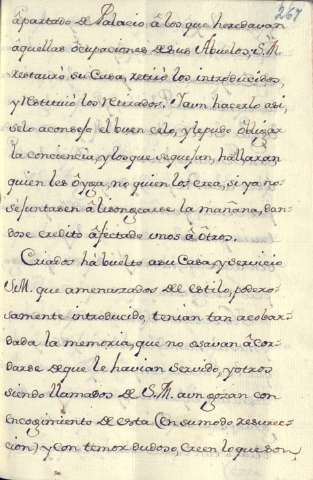 267
âpartado de Palacio â los que heredavan
aquellas ôcupaciones de sus Abuelos, S.M.
restaurò su Casa, retirò los introducidos,
y restituiò los retirados. Y aun hacerlo asi,
se lo aconsejo el buen celo, y le pudo ôbligar
la conciencia, y los que se quejan, hallaran
quien les ôyga, no quien los crea, si ya no
se juntasen â lisongearse la mañana, dan-
dose credito âfectado unos â ôtros.
Criados hâ buelto a su Casa, y servicio
S.M. que amenazados del estilo, podero-
samente introducido, tenian tan acobar-
dada la memoria, que no osavan âcor-
darse de que le havian servido, y otros
siendo llamados de S.M. aun gozan con
encogimiento de esta (en su modo resurec-
cion) y con temor dudoso, creen lo que son,